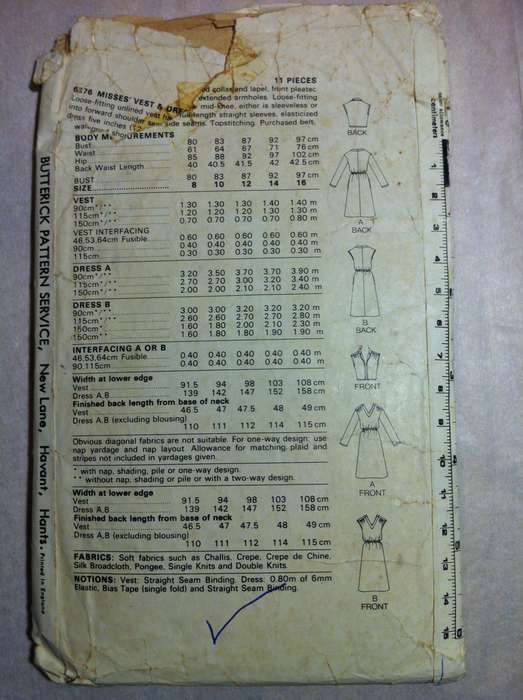 11 PIECES
6376 MISSES' VEST & DRE
Loose-fitting unlined vest ha
into forward shoulder
dress five inches
ed collar and lapel, front pleated
extended armholes. Loose-fitting
mid-knee, either is sleeveless or
length straight sleeves, elasticized
side seams. Topstitching. Purchased belt.
BODY MEASUREMENTS
Bust 80 83 87 92 97 cm
Waist 61 64 67 71 76 cm
Hip 85 88 92 97 102 cm
Back Waist Length 40 40.5 41.5 42 42.5 cm
BUST 80 83 87 92 97 cm
SIZE 8 10 12 14 16
VEST
90cm*/** 1.30 1.30 1.30 1.40 1.40 m
115cm*/** 1.20 1.20 1.30 1.30 1.30 m
150cm*/** 0.70 0.70 0.70 0.70 0.80 m
VEST INTERFACING
46,53,64cm Fusible 0.60 0.60 0.60 0.60 0.60 m
90cm 0.40 0.40 0.40 0.40 0.40 m
115cm 0.30 0.30 0.30 0.30 0.30 m
DRESS A
90cm*/** 3.20 3.50 3.70 3.70 3.90 m
115cm*/** 2.70 2.70 3.00 3.20 3.40 m
150cm*/** 2.00 2.00 2.10 2.10 2.40 m
DRESS B
90cm*/** 3.00 3.00 3.20 3.20 3.20 m
115cm*/** 2.60 2.60 2.70 2.70 2.80 m
150cm* 1.60 1.80 2.00 2.10 2.30 m
150cm** 1.60 1.80 1.80 1.90 1.90 m
INTERFACING A OR B
46,53,64cm Fusible 0.40 0.40 0.40 0.40 0.40 m
90,115cm 0.40 0.40 0.40 0.40 0.40 m
Width at lower edge
Vest 91.5 94 98 103 108 cm
Dress A,B 139 142 147 152 158 cm
Finished back length from base of neck
Vest 46.5 47 47.5 48 49 cm
Dress A,B (excluding blousing)
110 111 112 114 115 cm
Obvious diagonal fabrics are not suitable. For one-way design: use
nap yardage and nap layout. Allowance for matching plaid and
stripes not included in yardages given.
* with nap, shading, pile or one-way design.
** without nap, shading or pile or with a two-way design.
Width at lower edge
Vest 91.5 94 98 103 108 cm
Dress A,B 139 142 147 152 158 cm
Finished back length from base of neck
Vest 46.5 47 47.5 48 49 cm
Dress A,B (excluding blousing)
110 111 112 114 115 cm
FABRICS: Soft fabrics such as Challis, Crepe, Crepe de Chine,
Silk Broadcloth, Pongee, Single Knits and Double Knits.
NOTIONS: Vest: Straight Seam Binding. Dress: 0.80m of 6mm
Elastic, Bias Tape (single fold) and Straight Seam Binding.
BACK
A
BACK
B
BACK
FRONT
A
FRONT
B
FRONT
BUTTERICK PATTERN SERVICE, New Lane, Havant, Hants. Printed in England
Centimeters